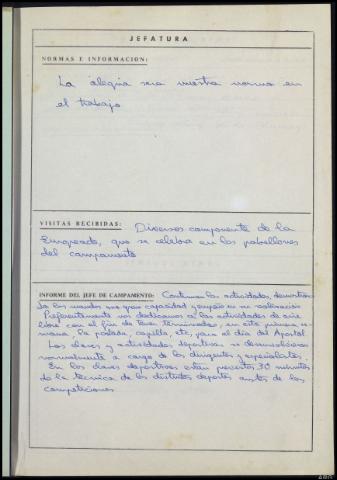 JEFATURA
NORMAS E INFORMACION:
La alegria sera nuestra norma en
el trabajo
VISITAS RECIBIDAS: Diversos componente de la
que se celebra en los pabellones
del campamento
INFORME DEL JEFE DE CAMPAMENTO: Continuan las actividades, demostran
do los mandos una gran capacidad y empeño en su realización
Preferentemente nos dedicamos a las actividades de aire
libre con el fin de tener terminadas, en esta primera se
mana la portada, capilla, etc, para el dia del Apostol
Las clases y actividades deportivas se desenvolvieron
normalmente a cargo de los dirigentes y especialistas.
En las clases deportivas estan previstos 30 minutos
de la tecnica de los distintos deportes antes de las
competiciones